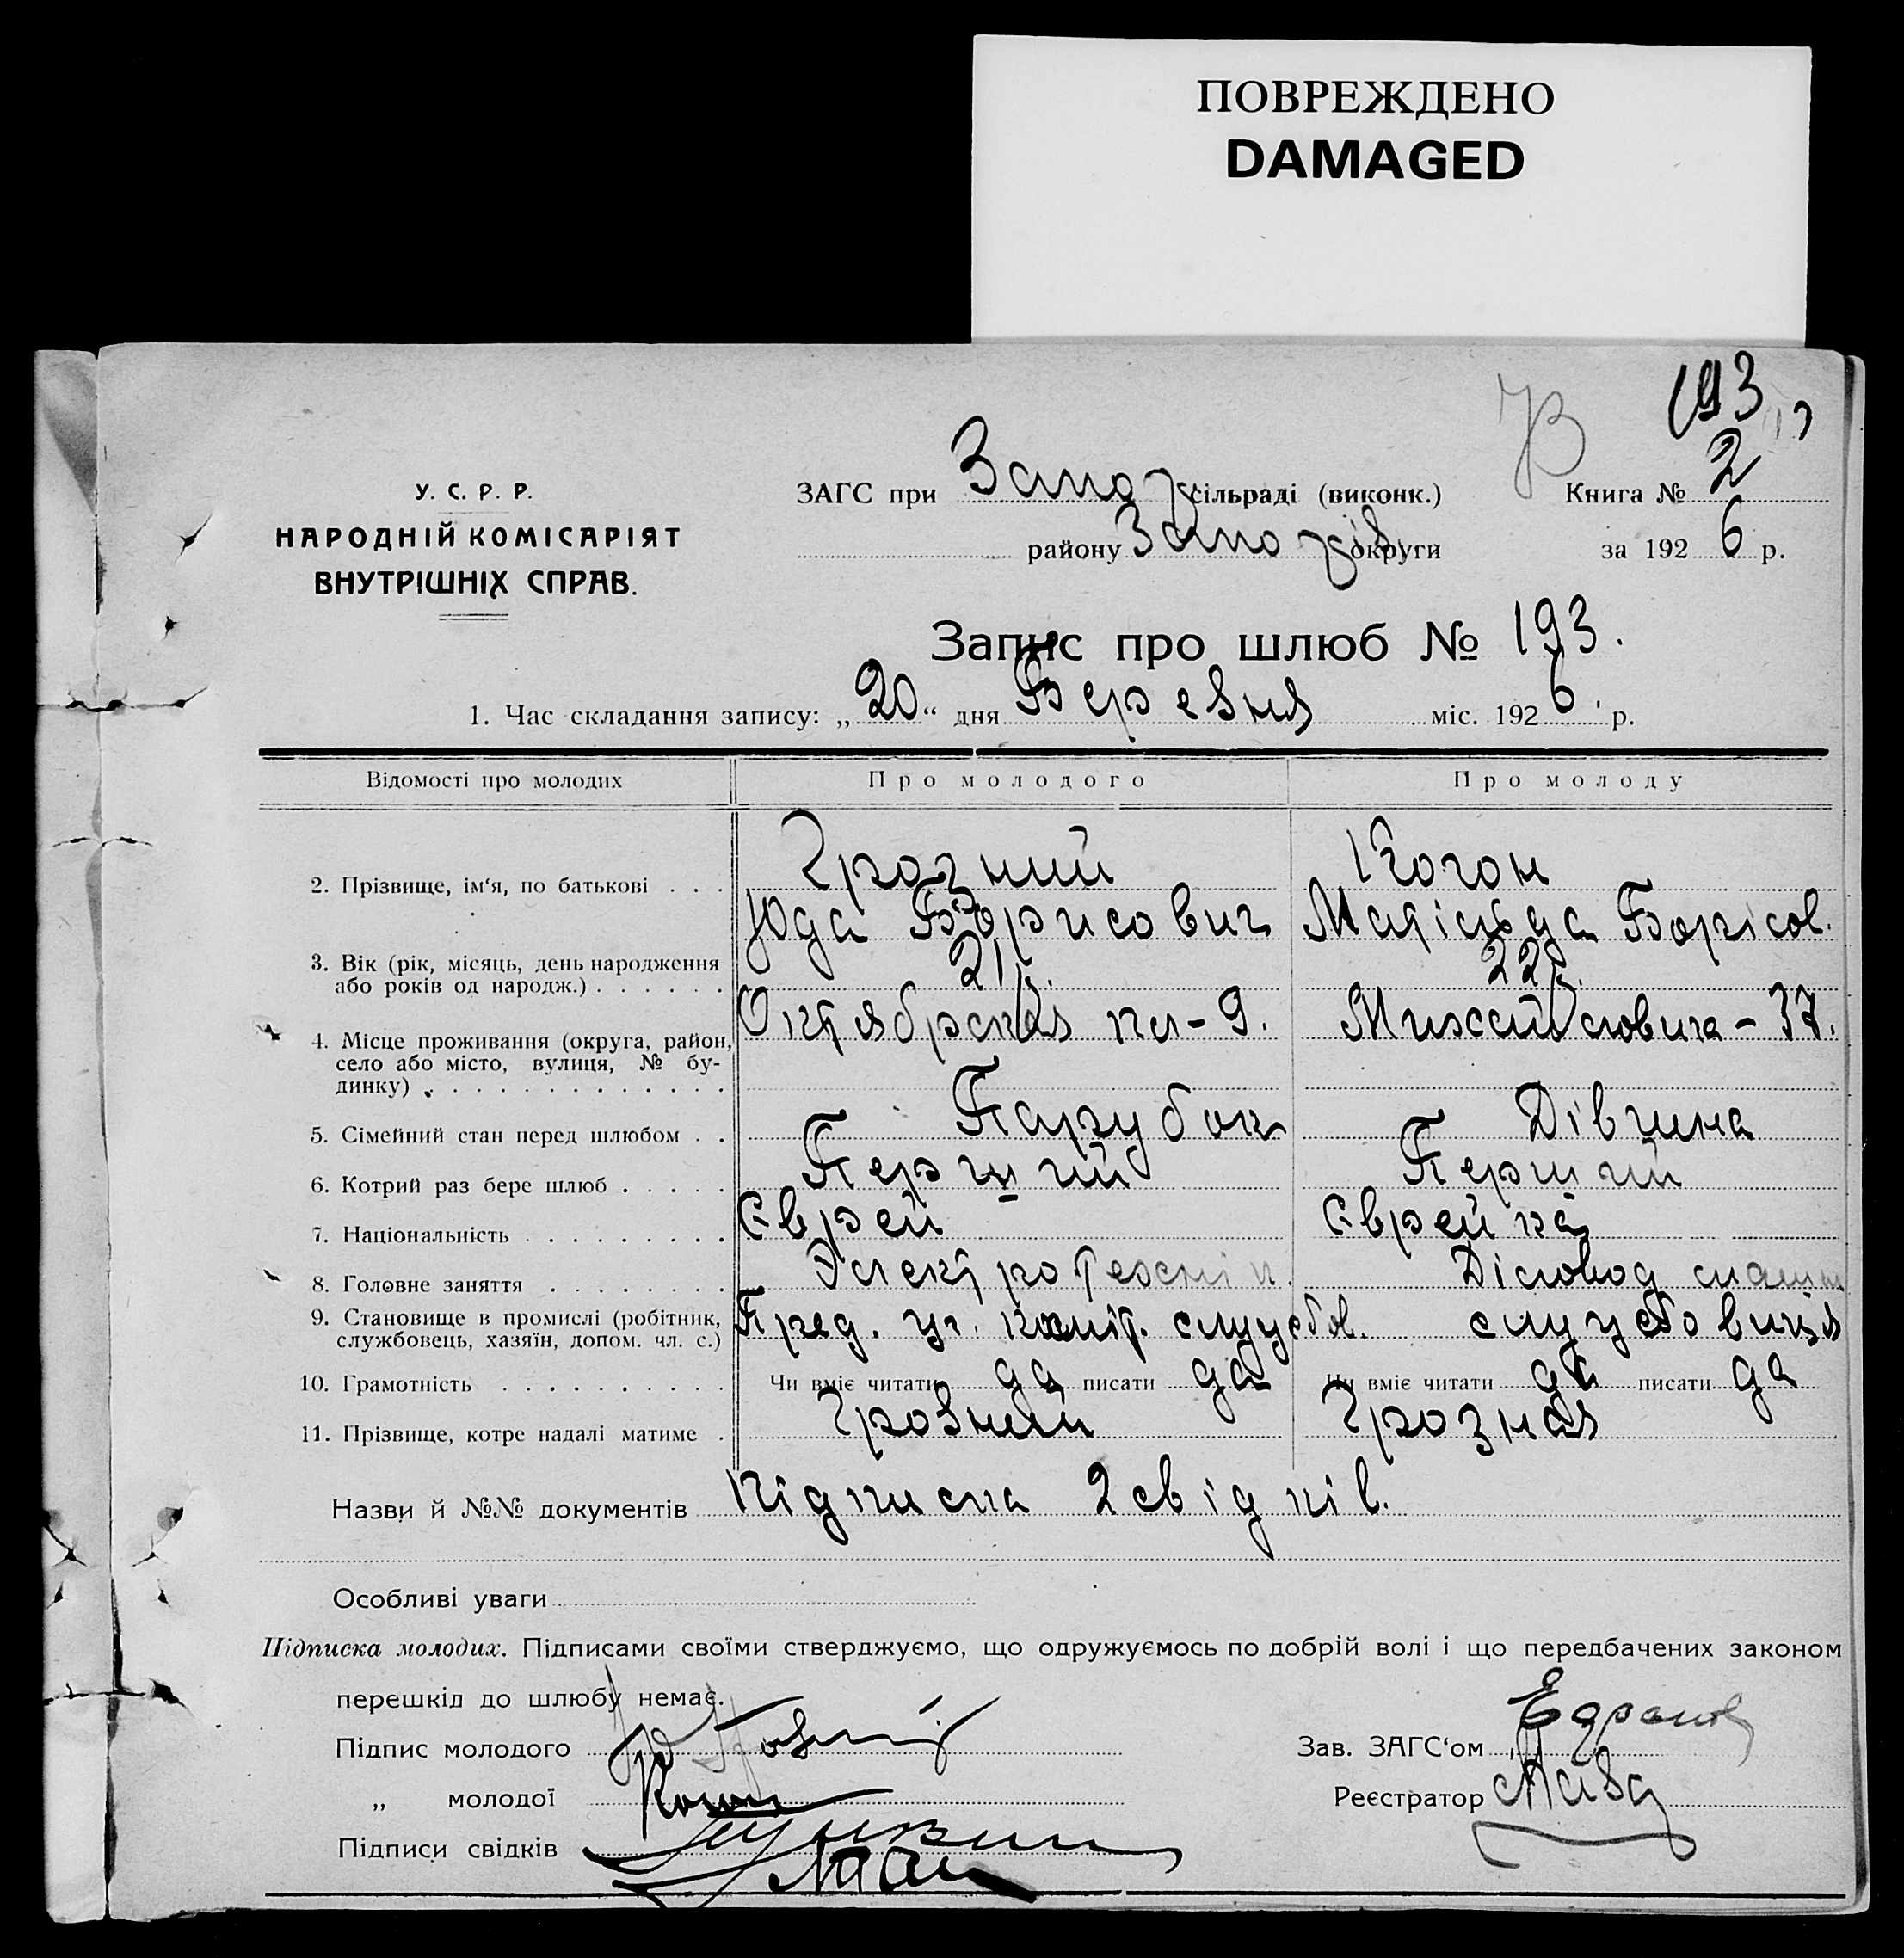 ПОВРЕЖДЕНО
DAMAGED
193
2
У. С. Р. Р.
НАРОДНІЙ КОМІСАРІЯТ
ВНУТРІШНІХ СПРАВ.
ЗАГС при Запор сільраді (виконк.) Книга №
району Запоріз округи за 192 6 р.
Запис про шлюб № 193.
1. Час складання запису: „ 20 “ дня Березня міс. 192 6. р.
Відомості про молодих Про молодого Про молоду
Грозний Коган
2. Прізвище, ім‘я, по батькові . . .
Юда Борисович Матільда Борісов.
3. Вік (рік, місяць, день народження 21 р. 22 р.
або років од народж.) . . . . . .
Октябрская пл-9. Михайловича - 37.
4. Місце проживання (округа, район,
село або місто, вулиця, № бу-
динку) . . . . . . . . . . . . .
5. Сімейний стан перед шлюбом . . Парубок Дівчина
6. Котрий раз бере шлюб . . . . . Перший Перший
7. Національність . . . . . . . . . Єврей Єврейка
8. Головне заняття . . . . . . . Электротехнік. Діловод
9. Становище в промислі (робітник, Пред. уч. коміт. службов. службовиця
службовець, хазяїн, допом. чл. с.)
10. Грамотність . . . . . . . . . . Чи вміє читати да писати да Чи вміє читати да писати да
11. Прізвище, котре надалі матиме . Грозний Грозная
Назви й №№ документів Підписка 2 свідків.
Особливі уваги
Підписка молодих. Підписами своїми стверджуємо, що одружуємось по добрій волі і що передбачених законом
перешкід до шлюбу немає.
Підпис молодого Зав. ЗАГС‘ом
„ молодої Коган Реєстратор
Підписи свідків